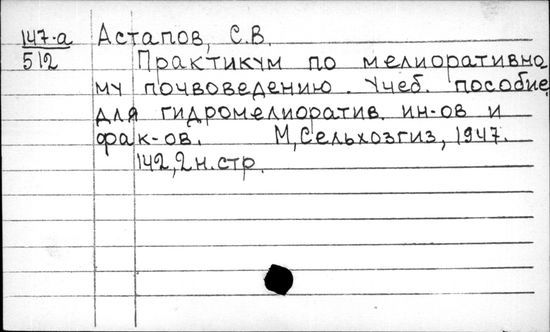 147-а Астапов, С.В.
512 Практикум по мелиоративно
му почвоведению. Учеб. пособие
для гидромелиоратив. ин-ов и
фак-ов. М, Сельхозгиз, 1947.
142, 2 н. стр.